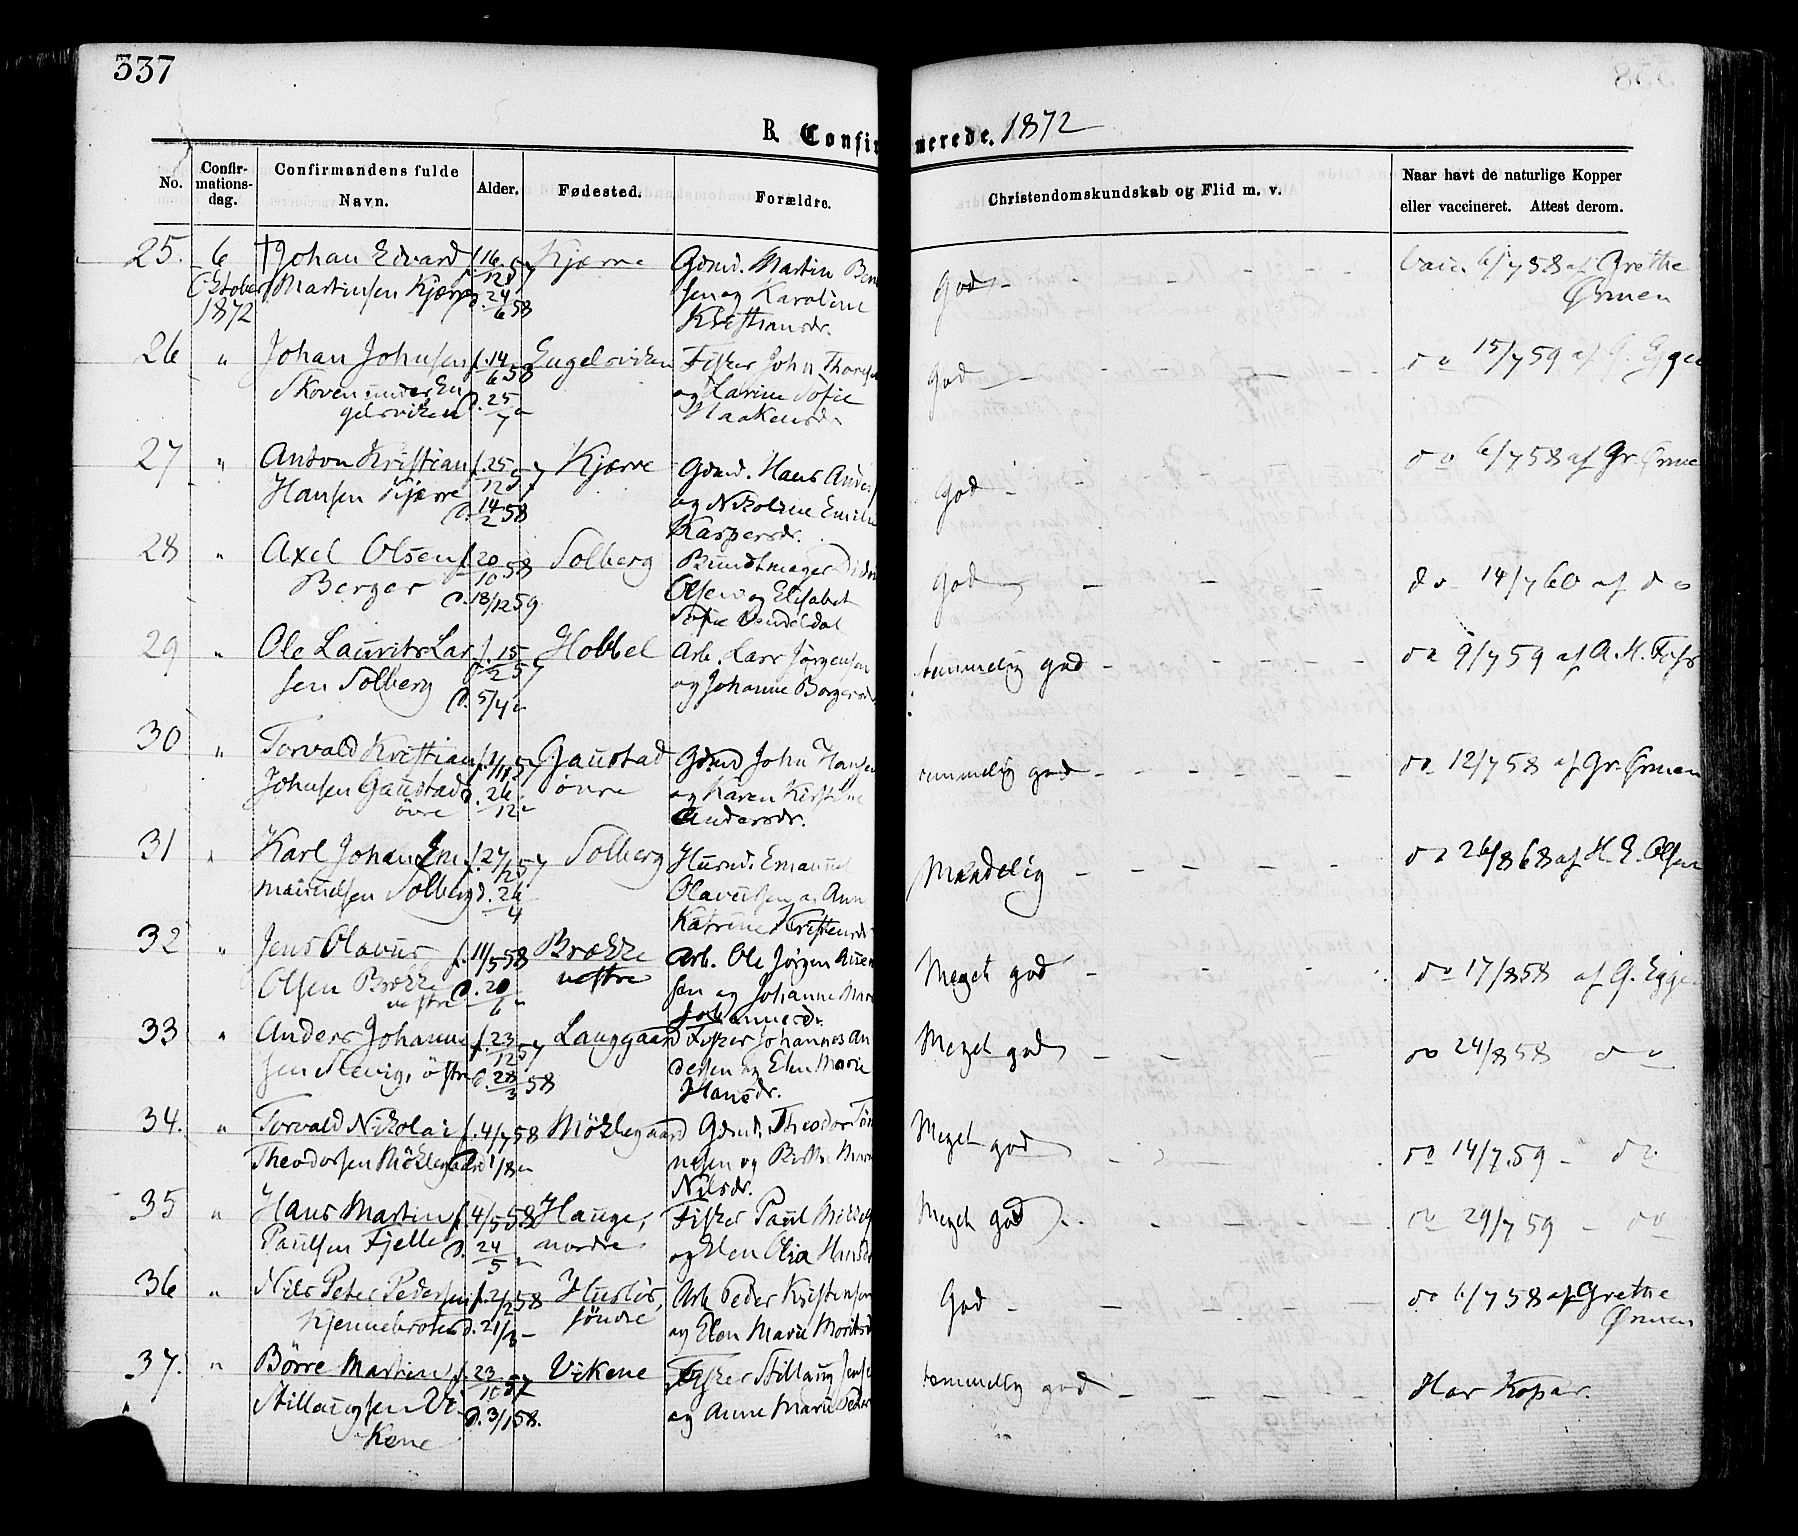 337
B. Confirmerede. 1872
No.
Confir-
mations-
dag.
Confirmandens fulde
Navn.
Alder.
Fødested.
Forældre.
Christendomskundskab og Flid m. v.
Naar havt de naturlige Kopper
eller vaccineret. Attest derom.
25. 6 †Johan Edvard f. 16/12 57 Kjærre Gdmd. Martin Ber God - 6/7 58 af Grethe
October Martinsen Kjærre d. 24/6 58 sen og Karoline Ørmen
1872 Kristiansdr.
26 " Johan Johnsen f. 14/6 58 Engelsviken Fisker John God - do 15/7 59 af G. Egge
Skoven under En d. 25/7 " og Larine Sofie
gelsviken Haakensdr
27 " Anton Kristian f. 25/12 57 Kjærre Gdmd. Hans Anders God - do 6/7 58 af Gr. Ørme
Hansen Kjærre d. 14/2 58 og Nikoline Emilie
Kaspersdr.
28 " Axel Olsen f. 20/10 58 Solberg Bundtmager God - do 14/7 60 af do
Berger d. 18/12 59. Olsen og Elisabet
Sofie
29 " Ole Laurits Lar f. 15/2 57 Hobbel Arb. Lars Jørgensen temmelig god - do 9/7 59 af A. M.
sen Solberg d. 5/4 " og Johanne Borgersd
30 " Torvald Kristian f. 1/11 57 Gaustad Gdmd John Hansen temmelig god - do 12/7 58 af Gr. Ørmen
Johnsen Gaustad d. 26/12 " øvre og Karen Kirstine
øvre Andersdr.
31 " Karl Johan Em f. 27/12 57 Solberg Husmd. Emanuel Maadelig - do 26/8 68 af H. E. Olsen
manuelsen Solberg d. 26/4 Olavesen og Ann
Katrine Kristensdr
32 " Jens Olavus f. 11/5 58 Brække Arb. Ole Jørgen Meget god - do 17/8 58 af G. Egge
Olsen Brække d. 20/6 " nestre sen og Johanne Mar
nestre Johannesdr.
33 " Anders Johanne f. 23/12 57 Langgaard Fisker Johannes An Meget god - do 24/8 58 do
sen Slevig, østre d. 28/3 58 dersen og Elen Marie
Hansdr.
34. " Torvald Nikolai f. 4/7 58 Møklegaard Gdmd. Theodor Tøn Meget god - do 14/7 59 - do
Theodorsen Møklegaard d. 1/8 " nesen og Berthe Mari
Nilsdr.
35 " Hans Martin f. 4/5 58 Hauge, Fisker Paul Meget god - do 29/7 59 - do
Paulsen Fjelle d. 24/5 " nordre og Elen Olia Hansd
36 " Nils Peter Pedersen f. 2/2 58 Husløs, Arb. Peder Kristensen God - do 6/7 58 af Grethe
Kjennebroten d. 21/3 " søndre og Elen Marie Moritsd Ørmen
37. " Børre Martin f. 23/10 57 Vikene Fisker Stillaug Jense temmelig god - Har Kopar.
Stillaugsen Vi d. 3/1 58. og Anne Marie Peder
kene